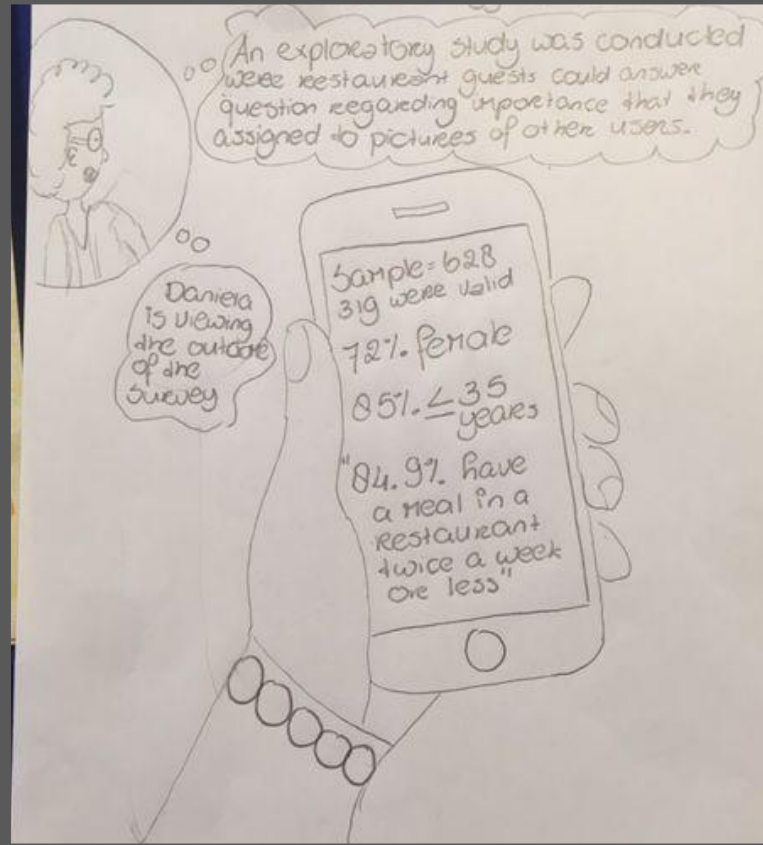 An exploratory study was conducted
were restaurant guests could answer
question regarding importance that they
assigned to pictures of other users.
Daniela
is viewing
the outcome
of the
survey
Sample=628
319 were valid
72% female
85% ≤ 35
years
"84.9% have
a meal in a
Restaurant
twice a week
or less"